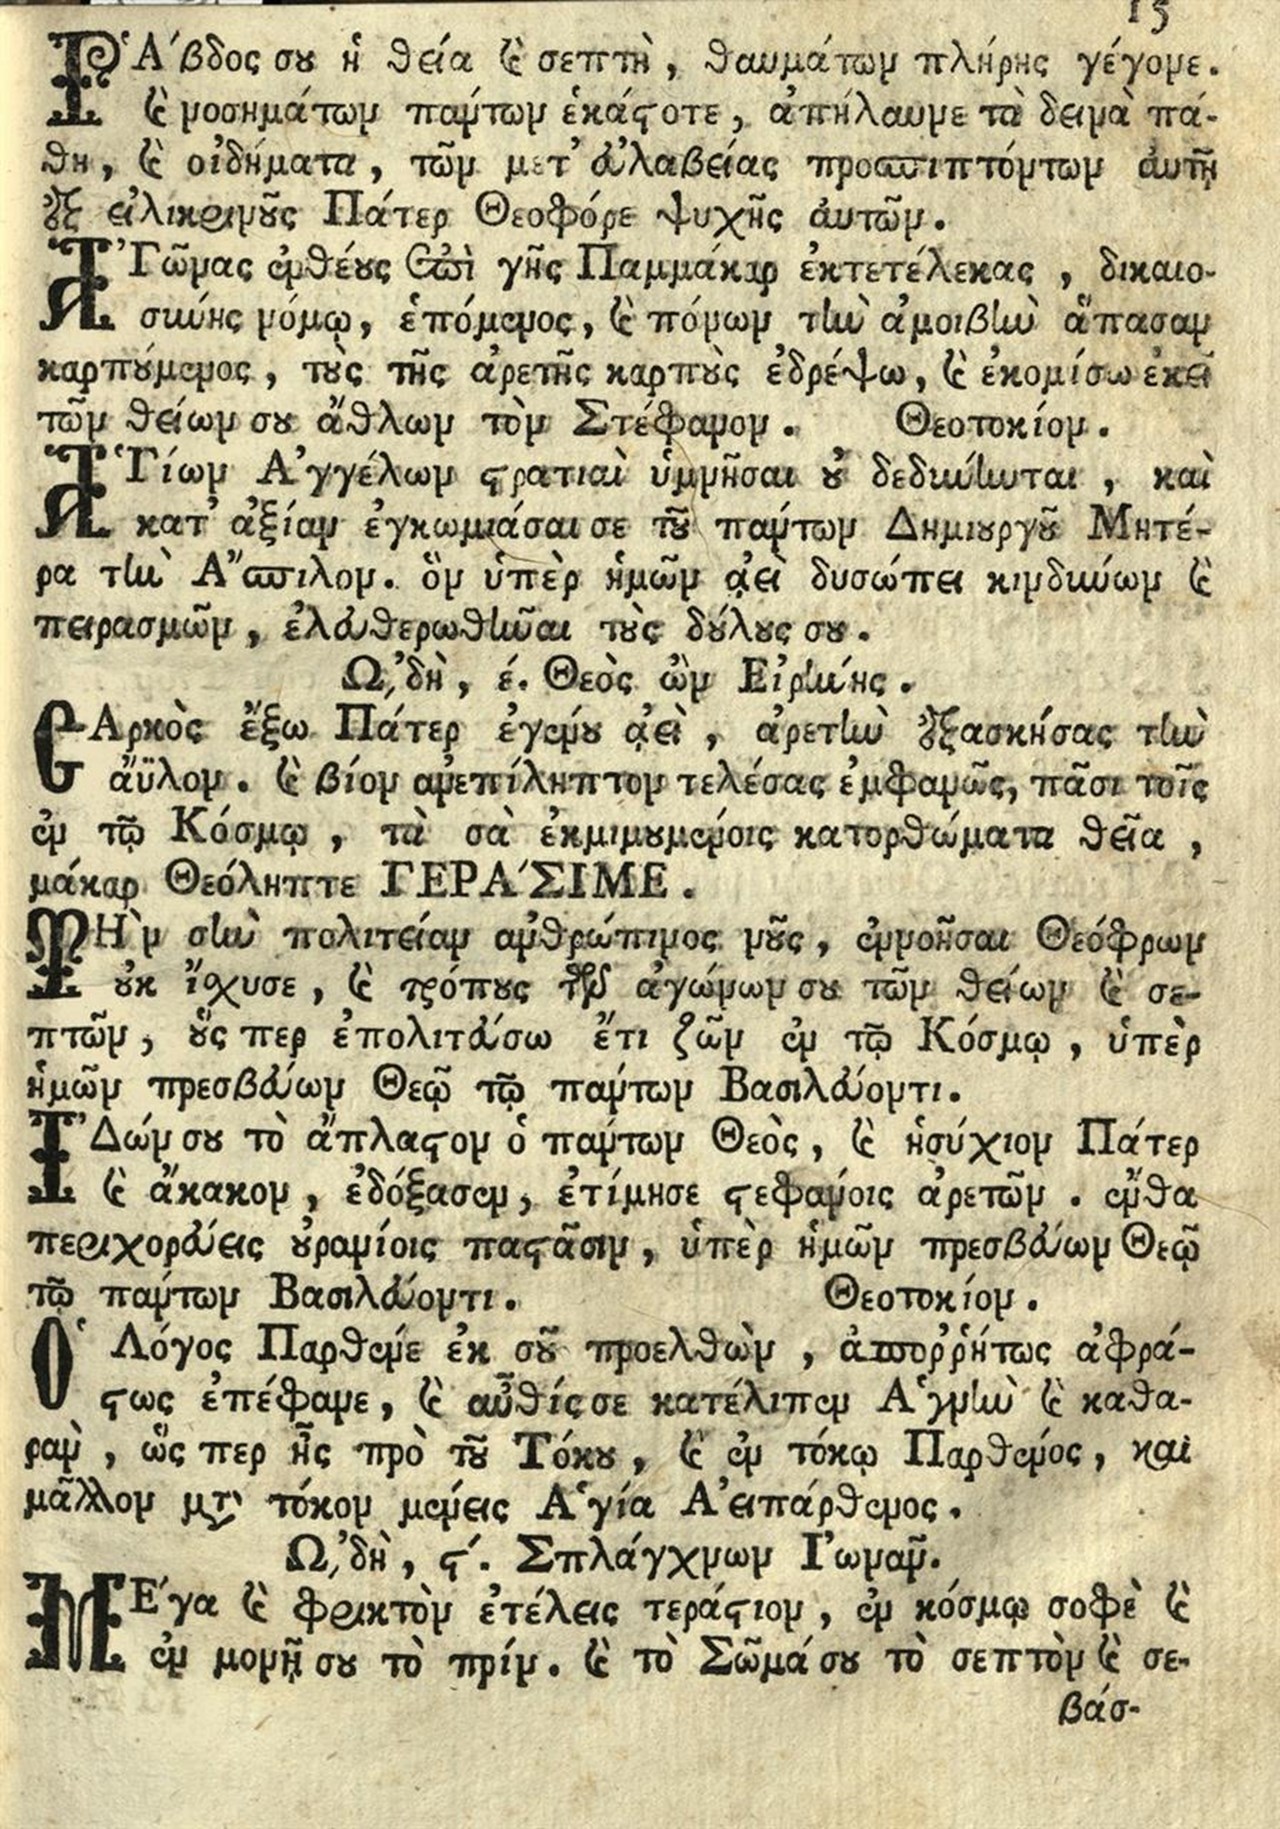 15
ΡΆβδος σου ἡ θεία καὶ σεπτὴ, θαυμάτων πλήρης γέγονε.
καὶ νοσημάτων πάντων ἑκάστοτε, ἀπήλαυνε τὰ δεινὰ πά-
θη, καὶ οἰδήματα, τῶν μετ' εὐλαβείας προσπιπτόντων αὐτῇ
ἐξ εἰλικρινοῦς Πάτερ Θεοφόρε ψυχῆς αὐτῶν.
ἈΓῶνας ἐνθέους ἐπὶ γῆς Παμμάκαρ ἐκτετέλεκας, δικαιο-
σύνης νόμῳ, ἑπόμενος, καὶ πόνων τὴν ἀμοιβὴν ἅπασαν
καρπούμενος, τοὺς τῆς ἀρετῆς καρποὺς ἐδρέψω, καὶ ἐκομίσω ἐκεῖ
τῶν θείων σου ἄθλων τὸν Στέφανον. Θεοτοκίον.
ἉΓίων Ἀγγέλων στρατιαὶ ὑμνῆσαι οὐ δεδύνηνται, καὶ
κατ' ἀξίαν ἐγκωμιάσαι σε τοῦ πάντων Δημιουργοῦ Μητέ-
ρα τὴν Ἄσπιλον. ὃν ὑπὲρ ἡμῶν ἀεὶ δυσώπει κινδύνων καὶ
πειρασμῶν, ἐλευθερωθῆναι τοὺς δούλους σου.
ᾨδὴ, έ. Θεὸς ὢν Εἰρήνης.
ΣΑρκὸς ἔξω Πάτερ ἐγένου ἀεὶ, ἀρετὴν ἐξασκήσας τὴν
ἄϋλον. καὶ βίον ἀνεπίληπτον τελέσας ἐμφανῶς, πᾶσι τοῖς
ἐν τῷ Κόσμῳ, τὰ σὰ ἐκμιμουμένοις κατορθώματα θεῖα,
μάκαρ Θεόληπτε ΓΕΡΆΣΙΜΕ.
ΤΗῚν σὴν πολιτείαν ἀνθρώπινος νοῦς, ἐννοῆσαι Θεόφρων
οὐκ ἴσχυσε, καὶ τρόπους τῶν ἀγώνων σου τῶν θείων καὶ σε-
πτῶν, οὕς περ ἐπολιτεύσω ἔτι ζῶν ἐν τῷ Κόσμῳ, ὑπὲρ
ἡμῶν πρεσβεύων Θεῷ τῷ πάντων Βασιλεύοντι.
ἸΔών σου τὸ ἄπλαστον ὁ πάντων Θεὸς, καὶ ἡσύχιον Πάτερ
καὶ ἄκακον, ἐδόξασεν, ἐτίμησε στεφάνοις ἀρετῶν. ἔνθα
περιχορεύεις οὐρανίοις παστᾶσιν, ὑπὲρ ἡμῶν πρεσβεύων Θεῷ
τῷ πάντων Βασιλεύοντι. Θεοτοκίον.
Ὁ Λόγος Παρθένε ἐκ σοῦ προελθὼν, ἀποῤῥήτως ἀφρά-
στως ἐπέφανε, καὶ αὖθίς σε κατέλιπεν Ἁγνὴν καὶ καθα-
ρὰν, ὥς περ ἦς πρὸ τοῦ Τόκου, καὶ ἐν τόκῳ Παρθένος, καὶ
μᾶλλον μετὰ τόκον μένεις Ἁγία Ἀειπάρθενος.
ᾨδὴ, ϛ´. Σπλάγχνων Ἰωνᾶν.
ΜΈγα καὶ φρικτὸν ἐτέλεις τεράστιον, ἐν κόσμῳ σοφὲ καὶ
ἐν μονῇ σου τὸ πρίν. καὶ τὸ Σῶμά σου τὸ σεπτὸν καὶ σε-
βάσ-